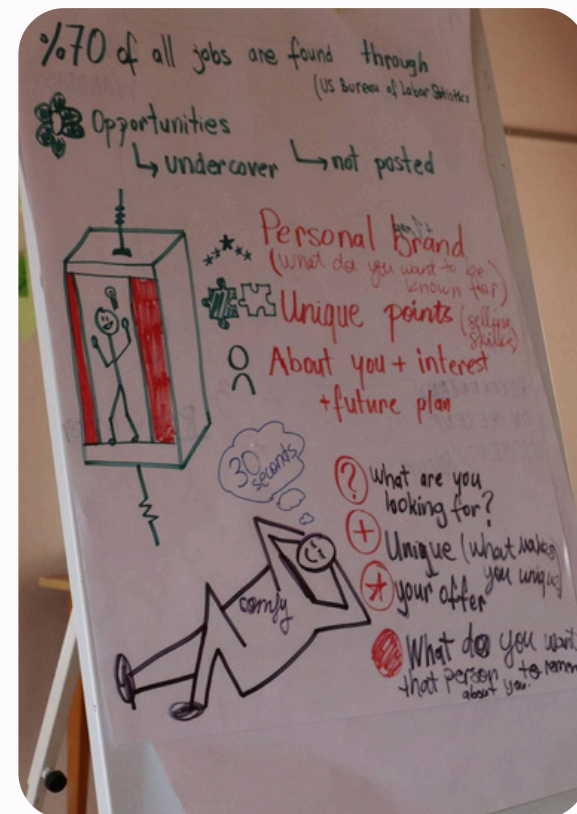 %70 of all jobs are found through
(US Bureau of Labor Statistics
Opportunities
↳ undercover ↳ not posted
Personal Brand
(what do you want to be
known for)
Unique points (selling
skills)
About you + interest
+ future plan
30
seconds
? what are you
looking for?
+ Unique (what makes
you unique)
* your offer
comfy
What do you want
that person to remem
about you.